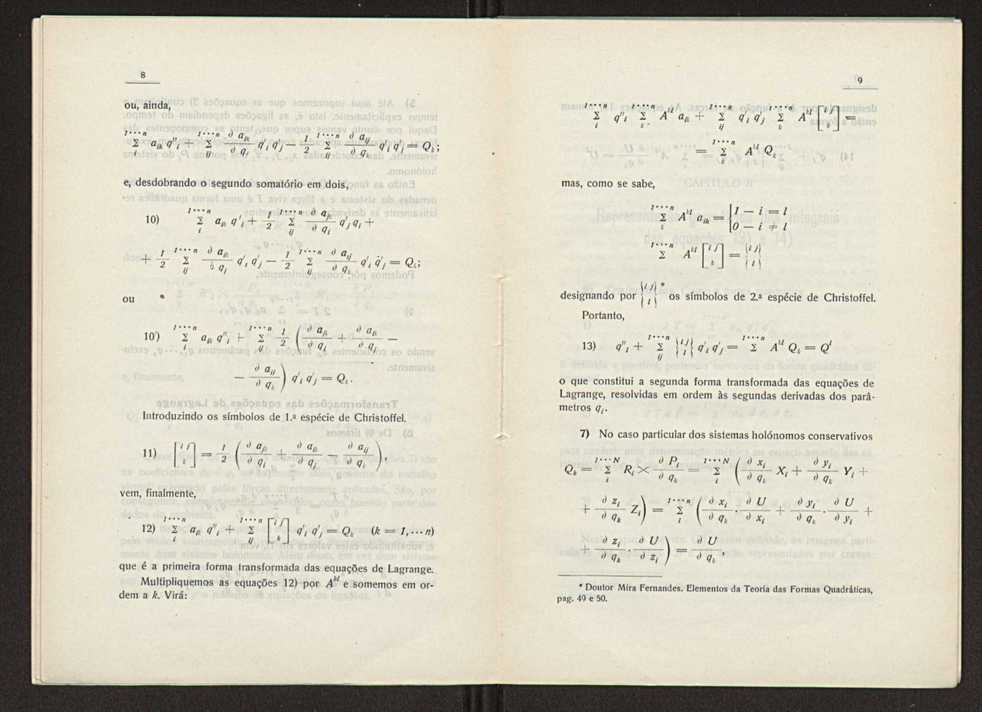 8
ou, ainda,
1···n Σ i a_ik q''_i + 1···n Σ ij ∂ a_ik / ∂ q_j q'_i q'_j — 1/2 1···n Σ ij ∂ a_ij / ∂ q_k q'_i q'_j = Q_k;
e, desdobrando o segundo somatório em dois,
10) 1···n Σ i a_ik q'_i + 1/2 1···n Σ ij ∂ a_jk / ∂ q_i q'_j q_i +
+ 1/2 1···n Σ ij ∂ a_ik / ∂ q_j q'_i q'_j — 1/2 1···n Σ ij ∂ a_ij / ∂ q_k q'_i q'_j = Q_k;
ou
10') 1···n Σ i a_ik q''_i + 1···n Σ ij 1/2 ( ∂ a_jk / ∂ q_i + ∂ a_ik / ∂ q_j —
— ∂ a_ij / ∂ q_k ) q'_i q'_j = Q_k.
Introduzindo os símbolos de 1.ª espécie de Christoffel.
11) [ i j / k ] = 1/2 ( ∂ a_jk / ∂ q_i + ∂ a_ik / ∂ q_j — ∂ a_ij / ∂ q_k ),
vem, finalmente,
12) 1···n Σ i a_ik q''_i + 1···n Σ ij [ i j / k ] q'_i q'_j = Q_k (k = 1,··· n)
que é a primeira forma transformada das equações de Lagrange.
Multipliquemos as equações 12) por A^kl e somemos em or-
dem a k. Virá:
9
1···n Σ i q''_i 1···n Σ k A^kl a_ik + 1···n Σ ij q'_i q'_j 1···n Σ k A^kl [ i j / k ] =
= 1···n Σ k A^kl Q_k
mas, como se sabe,
1···n Σ k A^kl a_ik = { 1 — i = l / 0 — i ≠ l
1···n Σ k A^kl [ i j / k ] = { i j / l }
designando por { i j / l } * os símbolos de 2.ª espécie de Christoffel.
Portanto,
13) q''_l + 1···n Σ ij { i j / l } q'_i q'_j = 1···n Σ k A^kl Q_k = Q^l
o que constitui a segunda forma transformada das equações de
Lagrange, resolvidas em ordem às segundas derivadas dos parâ-
metros q_i.
7) No caso particular dos sistemas holónomos conservativos
Q_k = 1···N Σ i R_i × ∂ P_i / ∂ q_k = 1···N Σ i ( ∂ x_i / ∂ q_k X_i + ∂ y_i / ∂ q_k Y_i +
+ ∂ z_i / ∂ q_k Z_i ) = 1···n Σ i ( ∂ x_i / ∂ q_k · ∂ U / ∂ x_i + ∂ y_i / ∂ q_k · ∂ U / ∂ y_i +
+ ∂ z_i / ∂ q_k · ∂ U / ∂ z_i ) = ∂ U / ∂ q_k,
* Doutor Mira Fernandes. Elementos da Teoria das Formas Quadráticas,
pag. 49 e 50.